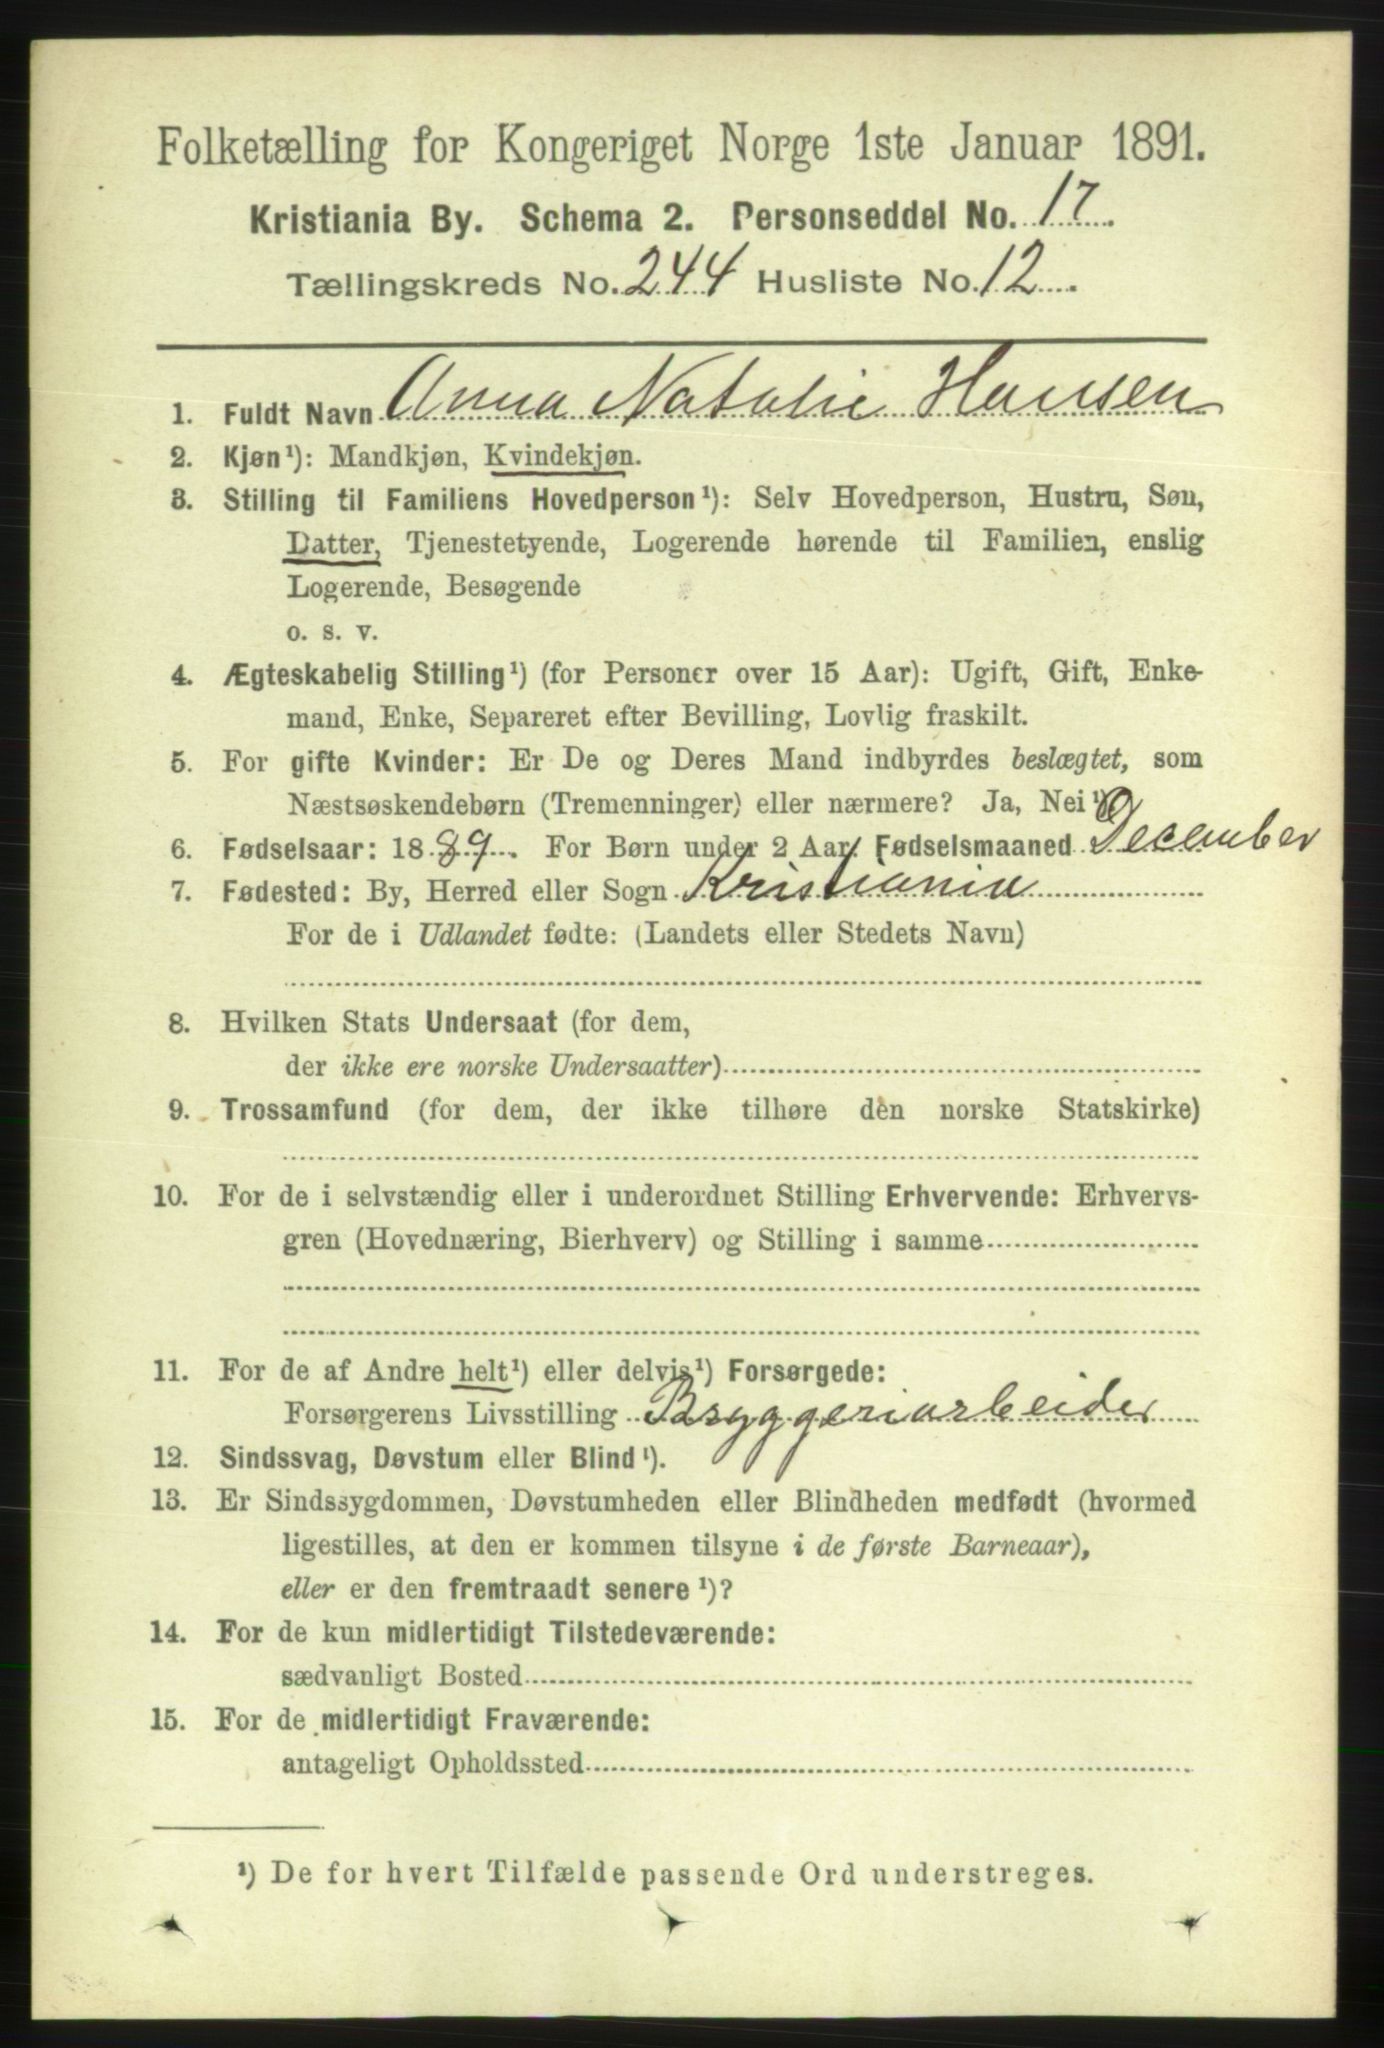 Folketælling for Kongeriget Norge 1ste Januar 1891.
Kristiania By. Schema 2. Personseddel No. 17.
Tællingskreds No. 244 Husliste No. 12.
1. Fuldt Navn Anna Natalie Hansen
2. Kjøn¹): Mandkjøn, Kvindekjøn.
3. Stilling til Familiens Hovedperson¹): Selv Hovedperson, Hustru, Søn,
Datter, Tjenestetyende, Logerende hørende til Familien, enslig
Logerende, Besøgende
o. s. v.
4. Ægteskabelig Stilling¹) (for Personer over 15 Aar): Ugift, Gift, Enke-
mand, Enke, Separeret efter Bevilling, Lovlig fraskilt.
5. For gifte Kvinder: Er De og Deres Mand indbyrdes beslægtet, som
Næstsøskendebørn (Tremenninger) eller nærmere? Ja, Nei¹).
6. Fødselsaar: 1889. For Børn under 2 Aar, Fødselsmaaned December
7. Fødested: By, Herred eller Sogn Kristiania
For de i Udlandet fødte: (Landets eller Stedets Navn)
8. Hvilken Stats Undersaat (for dem,
der ikke ere norske Undersaatter)
9. Trossamfund (for dem, der ikke tilhøre den norske Statskirke)
10. For de i selvstændig eller i underordnet Stilling Erhvervende: Erhvervs-
gren (Hovednæring, Bierhverv) og Stilling i samme
11. For de af Andre helt¹) eller delvis¹) Forsørgede:
Forsørgerens Livsstilling Bryggeriarbeider
12. Sindssvag, Døvstum eller Blind¹).
13. Er Sindssygdommen, Døvstumheden eller Blindheden medfødt (hvormed
ligestilles, at den er kommen tilsyne i de første Barneaar),
eller er den fremtraadt senere¹)?
14. For de kun midlertidigt Tilstedeværende:
sædvanligt Bosted
15. For de midlertidigt Fraværende:
antageligt Opholdssted
¹) De for hvert Tilfælde passende Ord understreges.